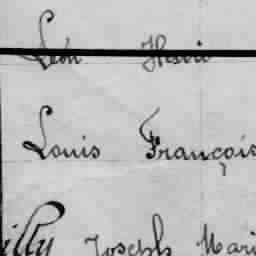 Léon Henri
Louis François
illy Joseph Mari